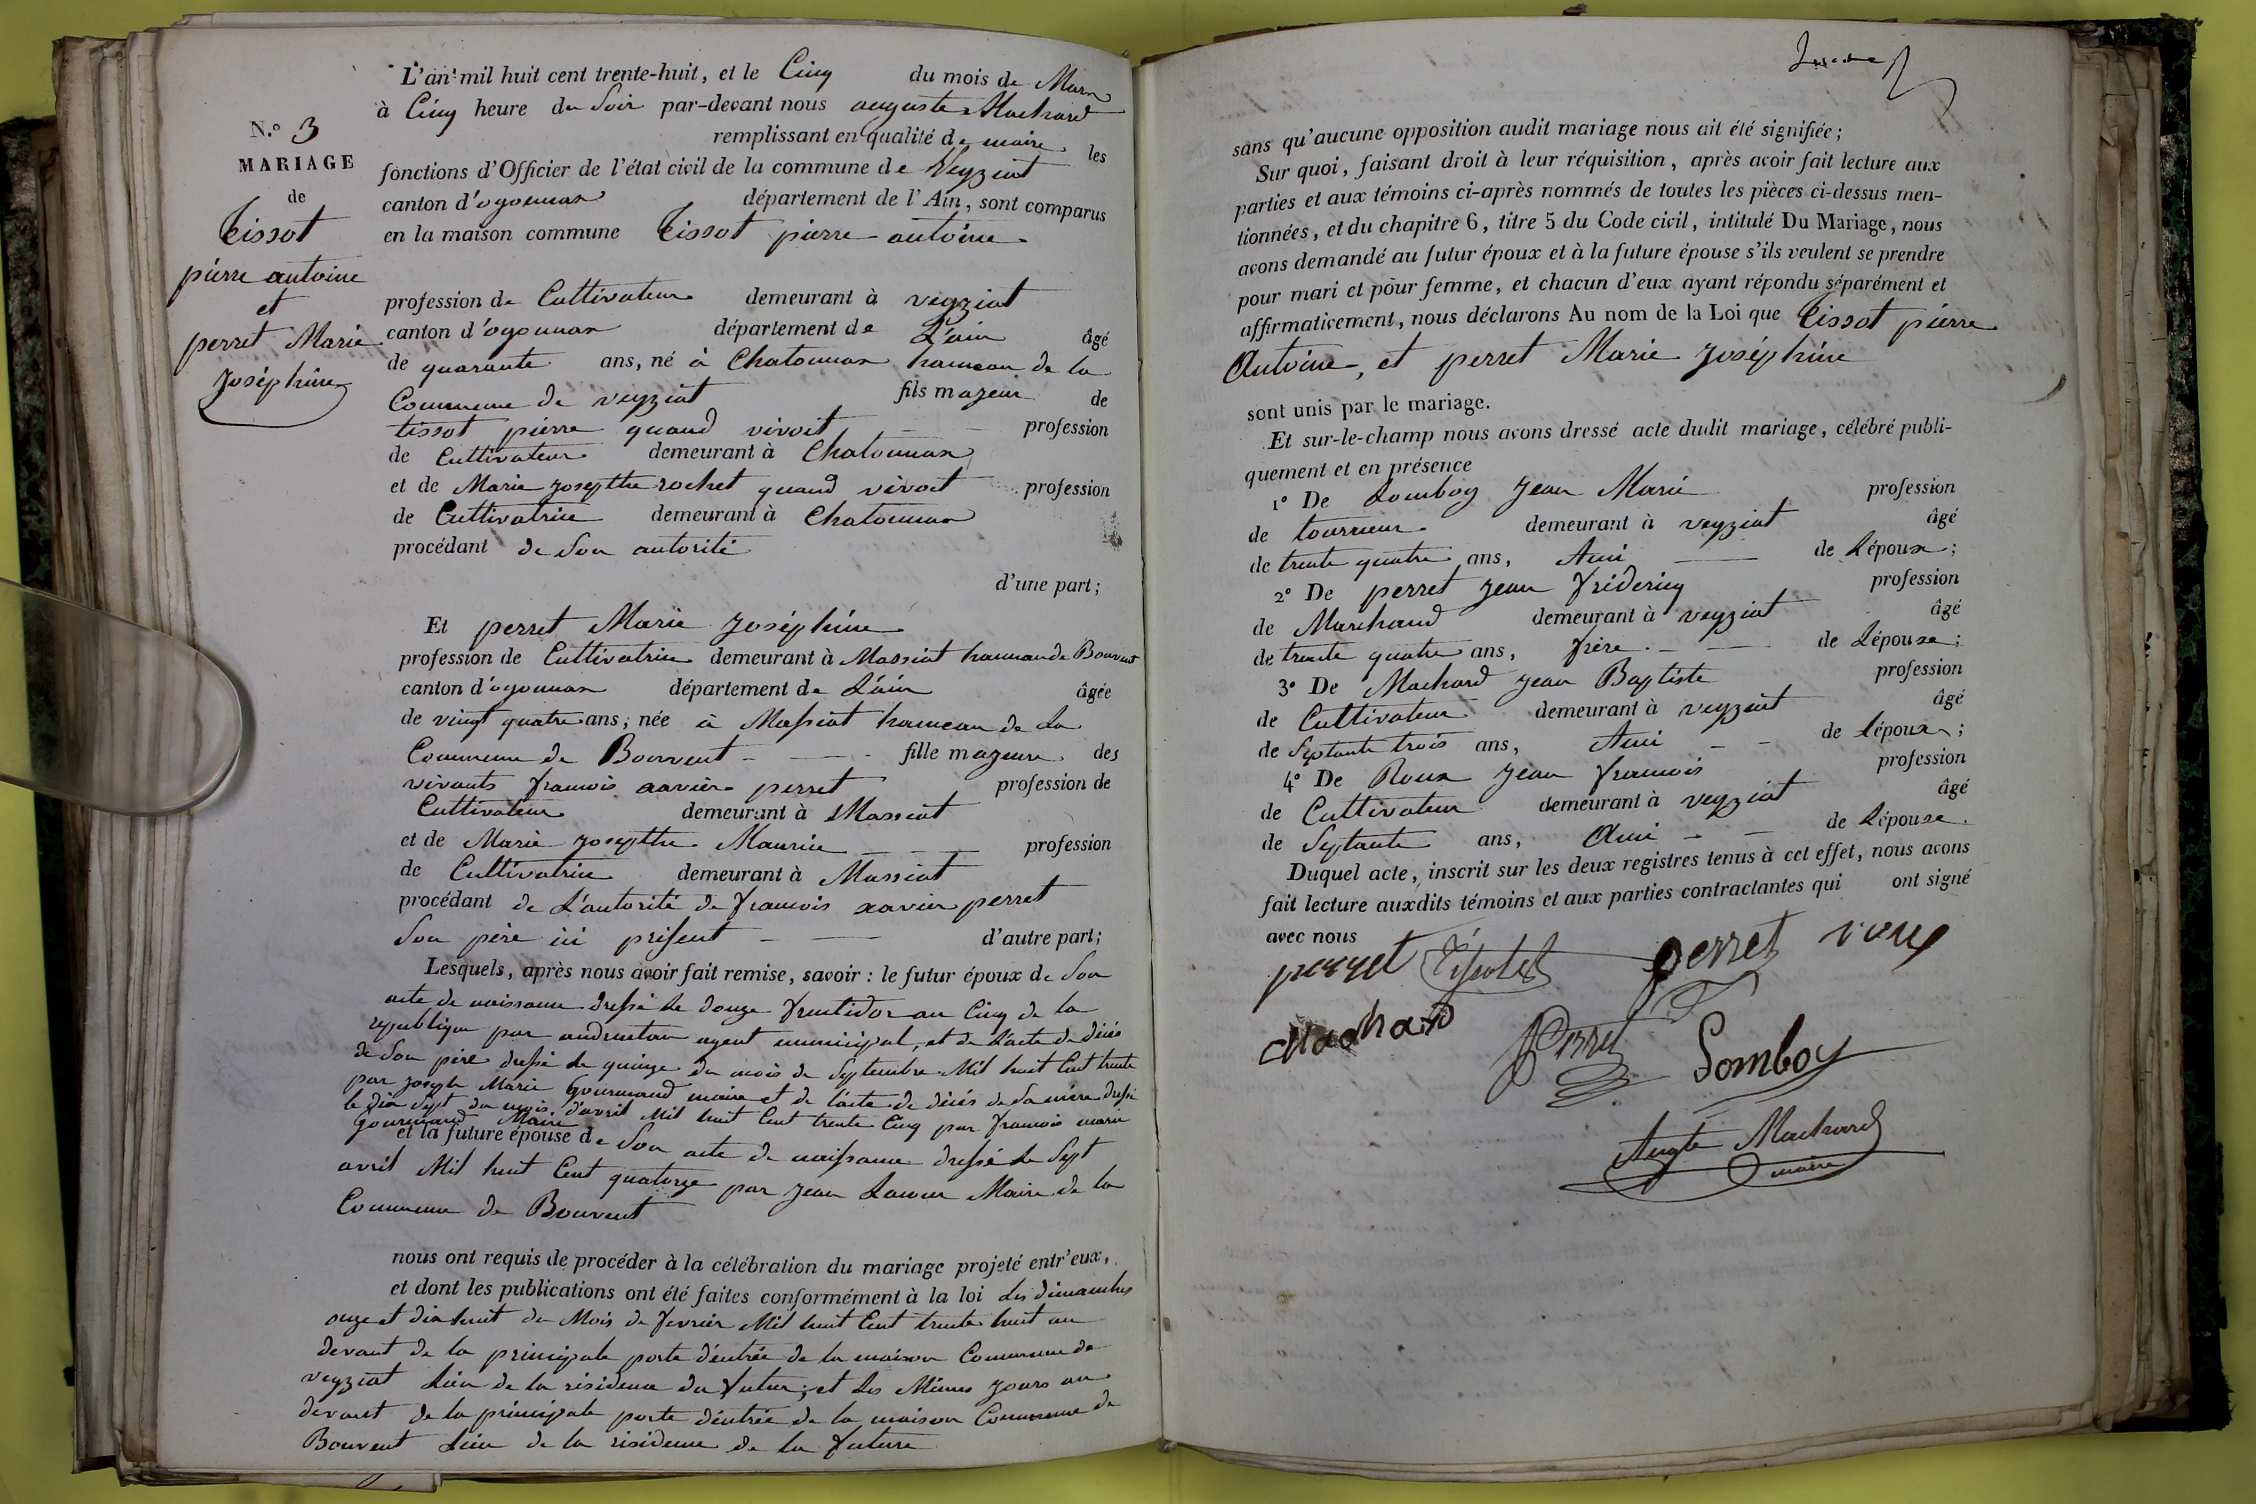 L'an mil huit cent trente-huit, et le Cinq du mois de Mars
à Cinq heure du Soir par-devant nous auguste Machard
remplissant en qualité de maire les
N.º 3
MARIAGE
de
Tissot
pierre antoine
et
perret Marie
Joséphine
fonctions d'Officier de l'état civil de la commune de Veyziat
canton d'oyonnax département de l'Ain, sont comparus
en la maison commune Tissot pierre antoine
profession de Cultivateur demeurant à veyziat
canton d'oyonnax département de L'ain âgé
de quarante ans, né à Chatonnax hameau de la
Commune de veyziat fils majeur de
tissot pierre quand vivoit profession
de Cultivateur demeurant à Chatonnax
et de Marie Josepthe rochet quand vivoit profession
de Cultivatrice demeurant à Chatonnax
procédant de Son autorité
d'une part;
Et perret Marie Joséphine
profession de Cultivatrice demeurant à Massiat hameau de Bouvent
canton d'oyonnax département de L'ain âgée
de vingt quatre ans, née à Massiat hameau de La
Commune de Bouvent fille majeure des
vivants francois xavier perret profession de
Cultivateur demeurant à Massiat
et de Marie Josepthe Maurice profession
de Cultivatrice demeurant à Massiat
procédant de L'autorité de francois xavier perret
Son père ici présent d'autre part;
Lesquels, après nous avoir fait remise, savoir : le futur époux de Son
acte de naissance dressé Le douze fructidor an Cinq de la
republique par agent municipal, et de L'acte de décès
de Son père dressé Le quinze du mois de Septembre Mil huit Cent trente
par Joseph Marie Gourmand maire et de L'acte de décès de Sa mère dressé
le dix Sept du mois d'avril Mil huit Cent trente Cinq par francois marie
Gourmand Maire
et la future épouse de Son acte de naissance dressé Le Sept
avril Mil huit Cent quatorze par Jean Maire de la
Commune de Bouvent
nous ont requis de procéder à la célébration du mariage projeté entr'eux,
et dont les publications ont été faites conformément à la loi Les dimanches
onze et dix huit du Mois de fevrier Mil huit Cent trente huit au
devant de la principale porte d'entrée de la maison Commune de
veyziat Lieu de la résidence du futur; et Les Mêmes Jours au
devant de la principale porte d'entrée de la maison Commune de
Bouvent Lieu de la résidence de la future
sans qu'aucune opposition audit mariage nous ait été signifiée;
Sur quoi, faisant droit à leur réquisition, après avoir fait lecture aux
parties et aux témoins ci-après nommés de toutes les pièces ci-dessus men-
tionnées, et du chapitre 6, titre 5 du Code civil, intitulé Du Mariage, nous
avons demandé au futur époux et à la future épouse s'ils veulent se prendre
pour mari et pour femme, et chacun d'eux ayant répondu séparément et
affirmativement, nous déclarons Au nom de la Loi que Tissot pierre
Antoine, et perret Marie Joséphine
sont unis par le mariage.
Et sur-le-champ nous avons dressé acte dudit mariage, célébré publi-
quement et en présence
1º De Lomboy Jean Marie profession
de tourneur demeurant à veyziat âgé
de trente quatre ans, Ami de L'époux;
2º De perret Jean fridericq profession
de Marchand demeurant à veyziat âgé
de trente quatre ans, frère de L'épouse;
3º De Machard Jean Baptiste profession
de Cultivateur demeurant à veyziat âgé
de Septante trois ans, Ami de L'époux;
4º De Roux Jean francois profession
de Cultivateur demeurant à veyziat âgé
de Septante ans, Ami de L'épouse.
Duquel acte, inscrit sur les deux registres tenus à cet effet, nous avons
fait lecture auxdits témoins et aux parties contractantes qui ont signé
avec nous
perret Tissot perret roux
Machard Perret Lomboy
Augte Machard
maire